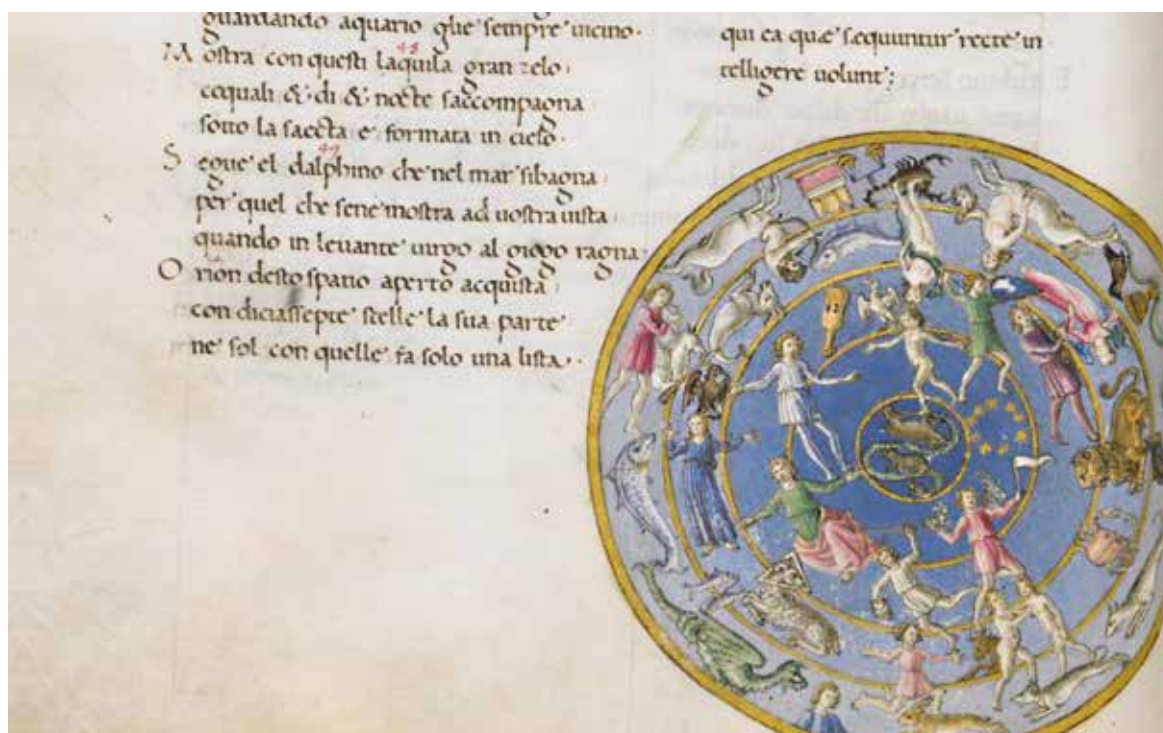 guardando aquario che sempre uicino·
Mostra con questi laquila gran zelo·
48
cequali &·di &·nocte saccompagna
sotto la saecta e' formata in cielo·
49
Segue' el dalphino che' nel mar' sibagna·
per' quel che sene'mostra ad uostra uista
quando in leuante' uirgo al giogo ragna·
Orion desto spatio aperto acquista·
con diciassepte' stelle' la sua parte'
ne' sol con quelle' fa solo una lista··
qui ea quæ' sequuntur' recte' in
telligere uolunt';